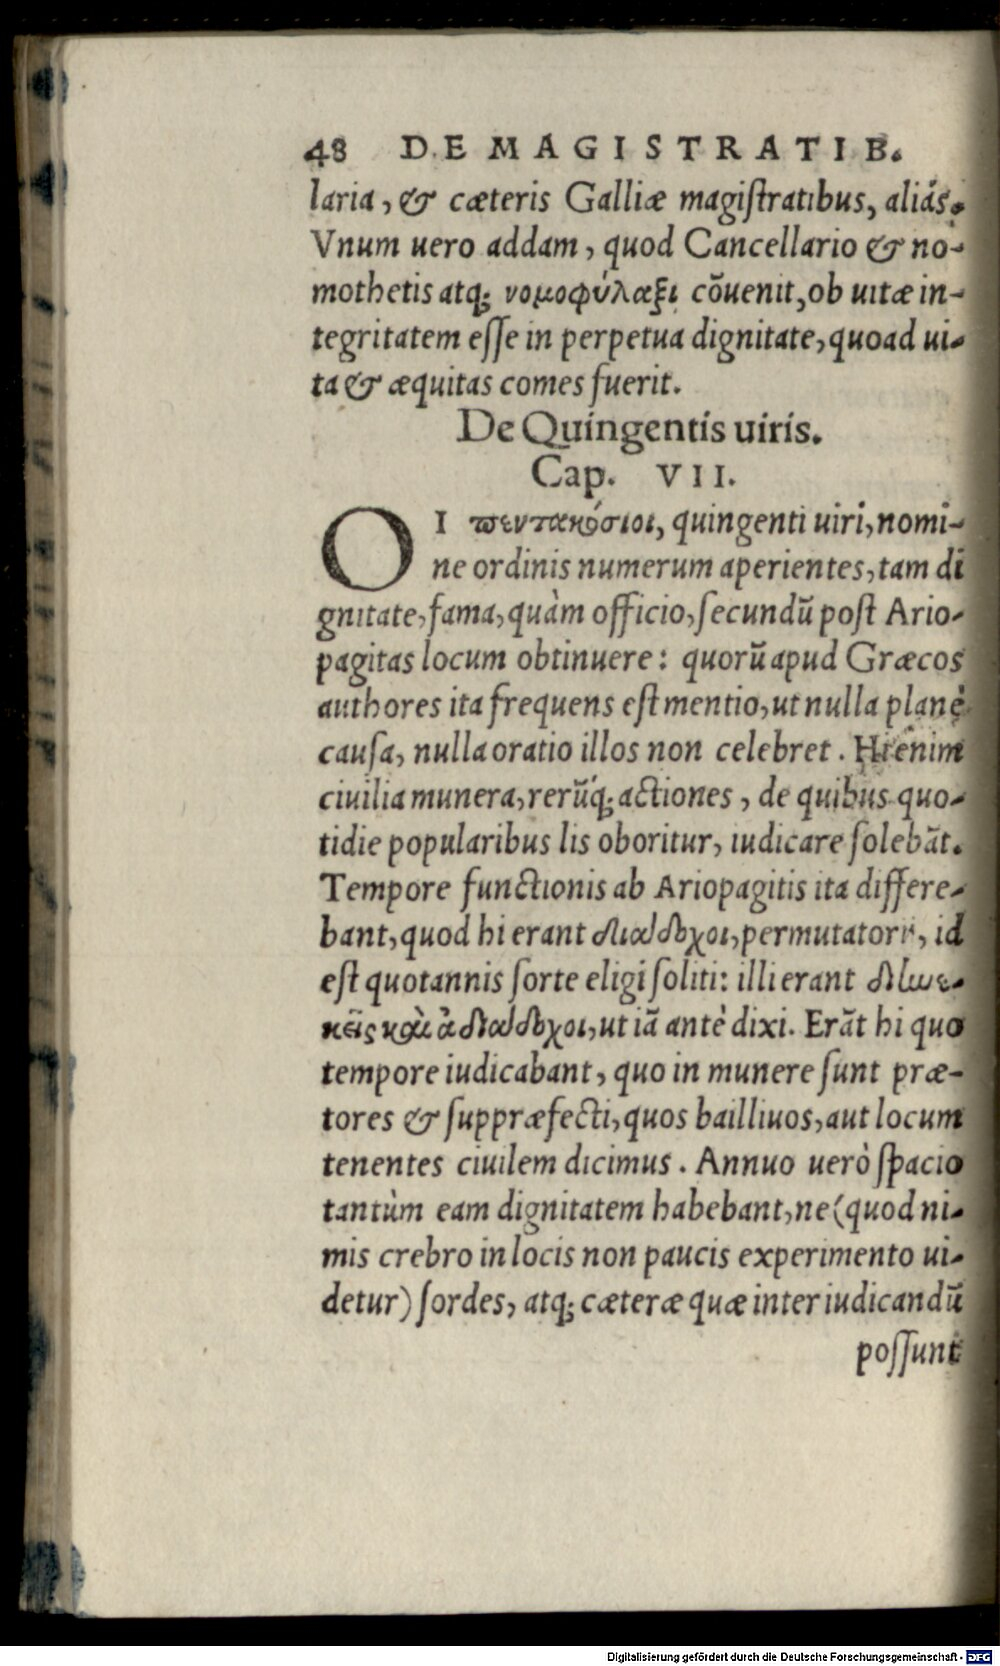 48 DE MAGISTRATIB.
laria, & cæteris Galliæ magiſtratibus, aliâs.
Vnum uero addam, quod Cancellario & no-
mothetis atq; νομοφύλαξι cōuenit, ob uitæ in-
tegritatem eſſe in perpetua dignitate, quoad ui-
ta & æquitas comes fuerit.
De Quingentis uiris.
Cap. VII.
OI πεντακόσιοι, quingenti uiri, nomi-
ne ordinis numerum aperientes, tam di
gnitate, fama, quàm officio, ſecundū poſt Ario-
pagitas locum obtinuere: quorū apud Græcos
authores ita frequens eſt mentio, ut nulla planè
cauſa, nulla oratio illos non celebret. Hi enim
ciuilia munera, rerūq́; actiones, de quibus quo-
tidie popularibus lis oboritur, iudicare ſolebāt.
Tempore functionis ab Ariopagitis ita differe-
bant, quod hi erant διαδοχοι, permutatorii, id
eſt quotannis ſorte eligi ſoliti: illi erant διωε-
κεῖς καὶ ἀδιαδοχοι, ut iā antè dixi. Erāt hi quo
tempore iudicabant, quo in munere ſunt præ-
tores & ſuppræfecti, quos bailliuos, aut locum
tenentes ciuilem dicimus. Annuo uerò ſpacio
tantùm eam dignitatem habebant, ne (quod ni-
mis crebro in locis non paucis experimento ui-
detur) ſordes, atq; cæteræ quæ inter iudicandū
poſſunt
Digitalisierung gefördert durch die Deutsche Forschungsgemeinschaft - DFG